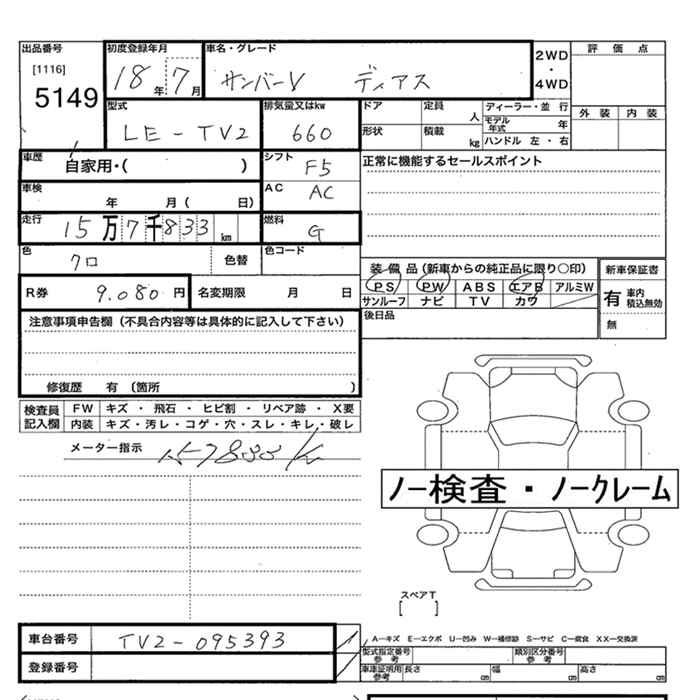 出品番号 初度登録年月 車名・グレード 2WD・4WD 評価点
[1116]
5149
18年 7月 サンバーV ディアス
型式 排気量又はkw ドア 定員 人 ディーラー・並行 外装 内装
LE-TV2 660 形状 積載 kg モデル年式 年
ハンドル 左・右
車歴 自家用・( ) シフト F5 正常に機能するセールスポイント
車検 年 月( 日) AC AC
走行 15万7千833 km 燃料 G
色 クロ 色替 色コード
装備品(新車からの純正品に限り○印) 新車保証書
R券 9.080円 名変期限 月 日 PS PW ABS エアB アルミW 有 車内積載無効
サンルーフ ナビ TV カワ
後日品 無
注意事項申告欄(不具合内容等は具体的に記入して下さい)
修復歴 有(箇所 )
検査員記入欄 FW キズ・飛石・ヒビ割・リペア跡・X要
内装 キズ・汚レ・コゲ・穴・スレ・キレ・破レ
メーター指示
ノー検査・ノークレーム
スペアT
[ ]
車台番号 TV2-095393
A-キズ E-エクボ U-凹み W-補修跡 S-サビ C-腐食 XX-交換済
登録番号 型式指定番号 参考 類別区分番号 参考
車庫証明用 参考 長さ cm 幅 cm 高さ cm